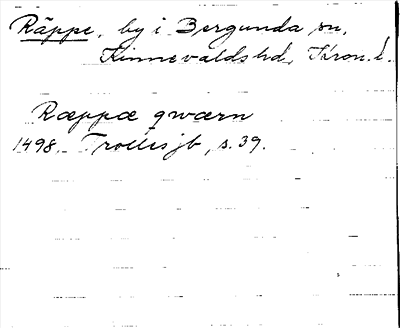 Räppe, by i Bergunda sn,
Kinnevalds hd, Kron. l.
Ræppæ qwærn
1498. Trolles jb, s. 39.